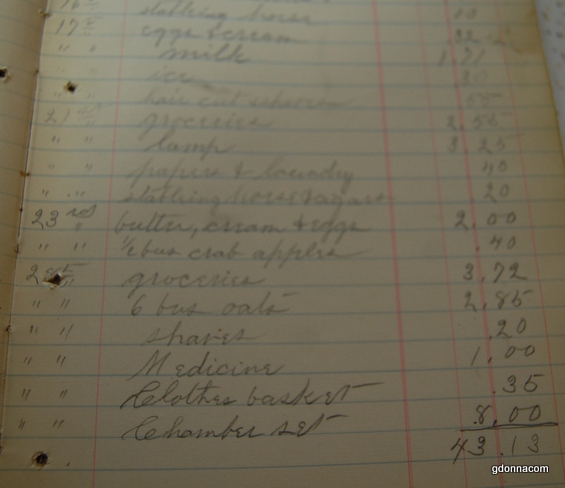 stabling horse
17th eggs & cream
" " milk 1.71
" " ice
" " hair cut
21st groceries 2.55
" " lamp 3 25
" " papers & laundry 40
" " stabling horse 20
23rd butter, cream & eggs 2.00
" " ½ bus crab apples .40
groceries 3.72
" " 6 bus oats 2.85
" " shaves .20
" " Medicine 1.00
" " Clothes basket .35
" " Chamber set 8.00
43.13
gdonnacom